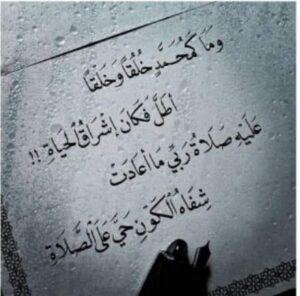 وَمَا كَمُحَمَّدٍ خُلُقًا وَخَلْقًا
أَطَلَّ فَكَانَ إِشْرَاقُ الْحَيَاةِ !!
عَلَيْهِ صَلَاةُ رَبِّي مَا أَعَادَتْ
شِفَاهُ الْكَوْنِ حَيَّ عَلَى الصَّلَاةِ